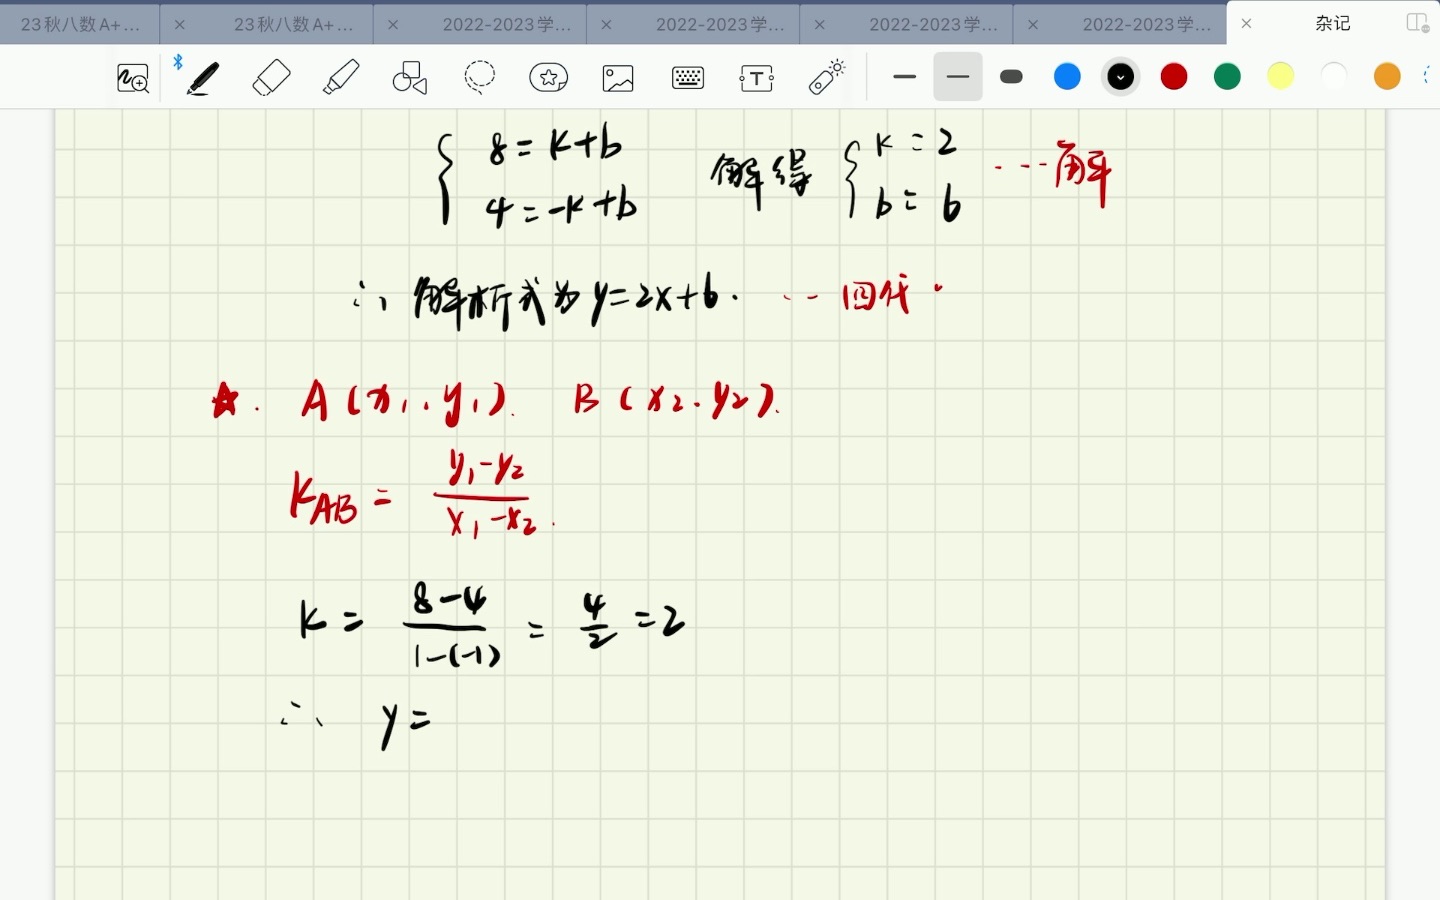 23秋八数A+... 23秋八数A+... 2022-2023学... 2022-2023学... 2022-2023学... 2022-2023学... 杂记
T
8=k+b 解得 k=2 ...解
4=-k+b b=6
∴ 解析式为y=2x+6. ...回代.
★. A(x₁,y₁). B(x₂.y₂).
K_AB = (y₁-y₂)/(x₁-x₂).
K = (8-4)/(1-(-1)) = 4/2 =2
∴ y=